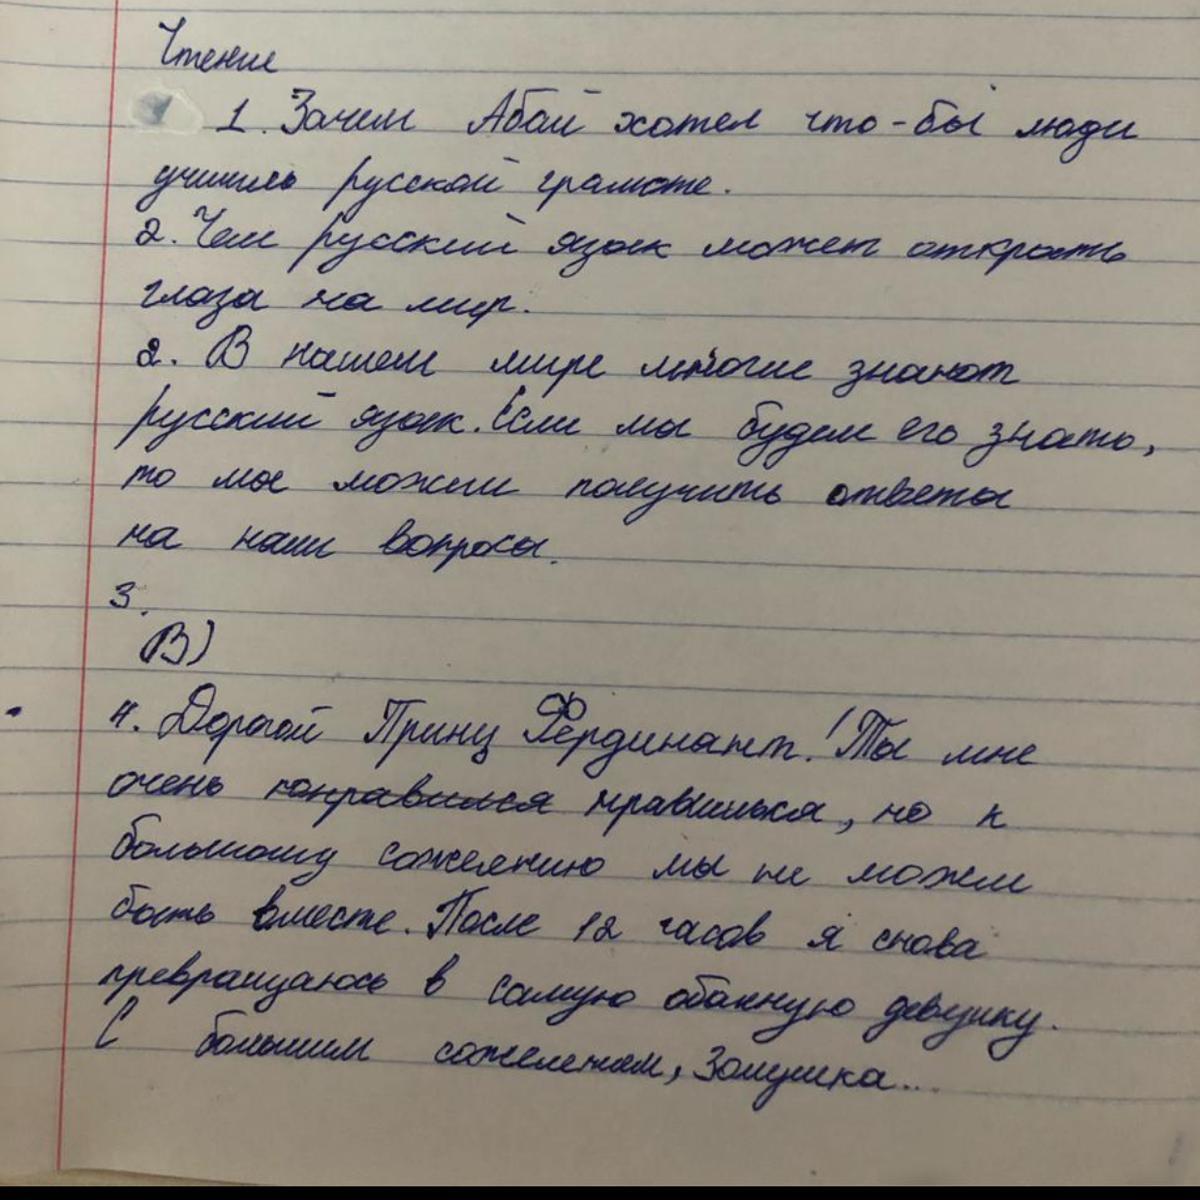 Чтение
1. Зачем Абай хотел что-бы люди
учились русской грамоте.
2. Чем русский язык может открыть
глаза на мир.
2. В нашем мире многие знают
русский язык. Если мы будем его знать,
то мы можем получить ответы
на наши вопросы.
3.
В)
4. Дорогой Принц Фердинант! Ты мне
очень понравился нравишься, но к
большому сожелению мы не можем
быть вместе. После 12 часов я снова
превращаюсь в самую обычную девушку.
С большим сожелением, Золушка...